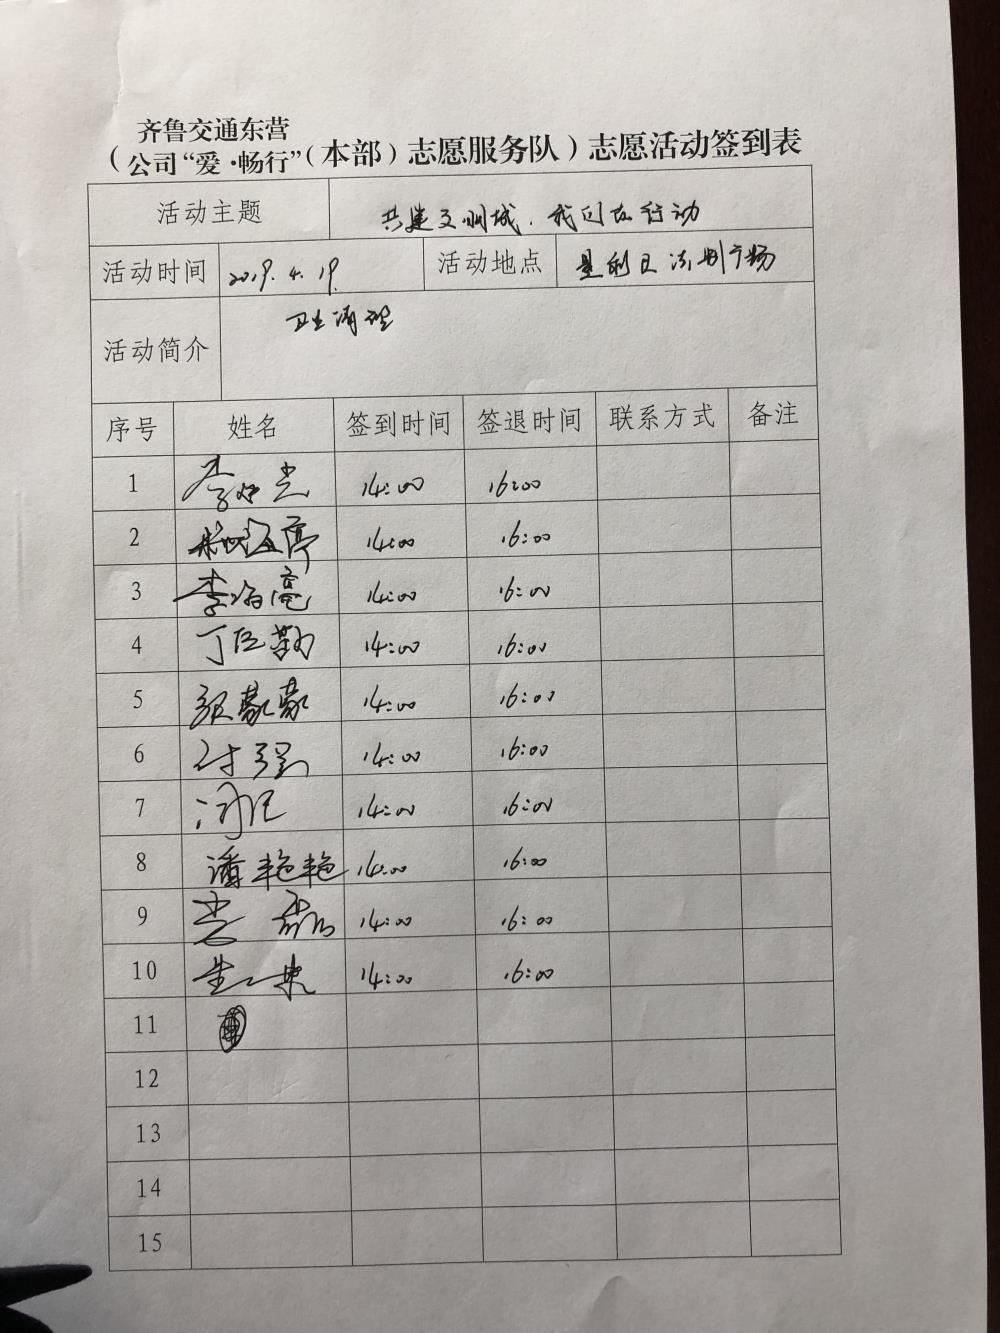 齐鲁交通东营
(公司“爱·畅行”(本部)志愿服务队)志愿活动签到表
活动主题 共建文明城,我们在行动
活动时间 2019.4.19. 活动地点 垦利区
活动简介 卫生清理
序号 姓名 签到时间 签退时间 联系方式 备注
1 14:00 16:00
2 14:00 16:00
3 李 亮 14:00 16:00
4 丁 勤 14:00 16:00
5 豪豪 14:00 16:00
6 付强 14:00 16:00
7 14:00 16:00
8 潘艳艳 14:00 16:00
9 14:00 16:00
10 14:00 16:00
11
12
13
14
15